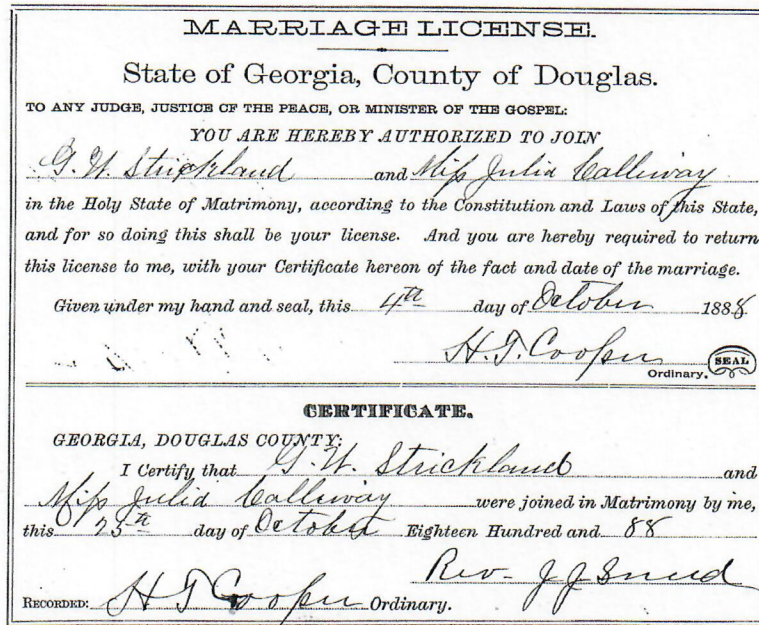 MARRIAGE LICENSE.
State of Georgia, County of Douglas.
TO ANY JUDGE, JUSTICE OF THE PEACE, OR MINISTER OF THE GOSPEL:
YOU ARE HEREBY AUTHORIZED TO JOIN
G. W. Strickland and Miss Julia Calliway
in the Holy State of Matrimony, according to the Constitution and Laws of this State,
and for so doing this shall be your license. And you are hereby required to return
this license to me, with your Certificate hereon of the fact and date of the marriage.
Given under my hand and seal, this 4th day of October 1888.
H. T. Cooper SEAL
Ordinary.
CERTIFICATE.
GEORGIA, DOUGLAS COUNTY:
I Certify that G. W. Strickland and
Miss Julia Calliway were joined in Matrimony by me,
this 25th day of October Eighteen Hundred and 88
Rev. J J
RECORDED: H T Cooper Ordinary.